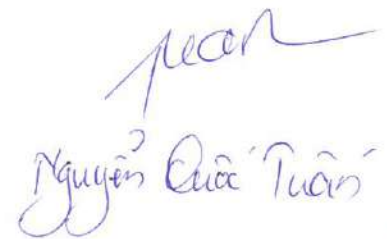 Nguyễn Quốc Tuấn